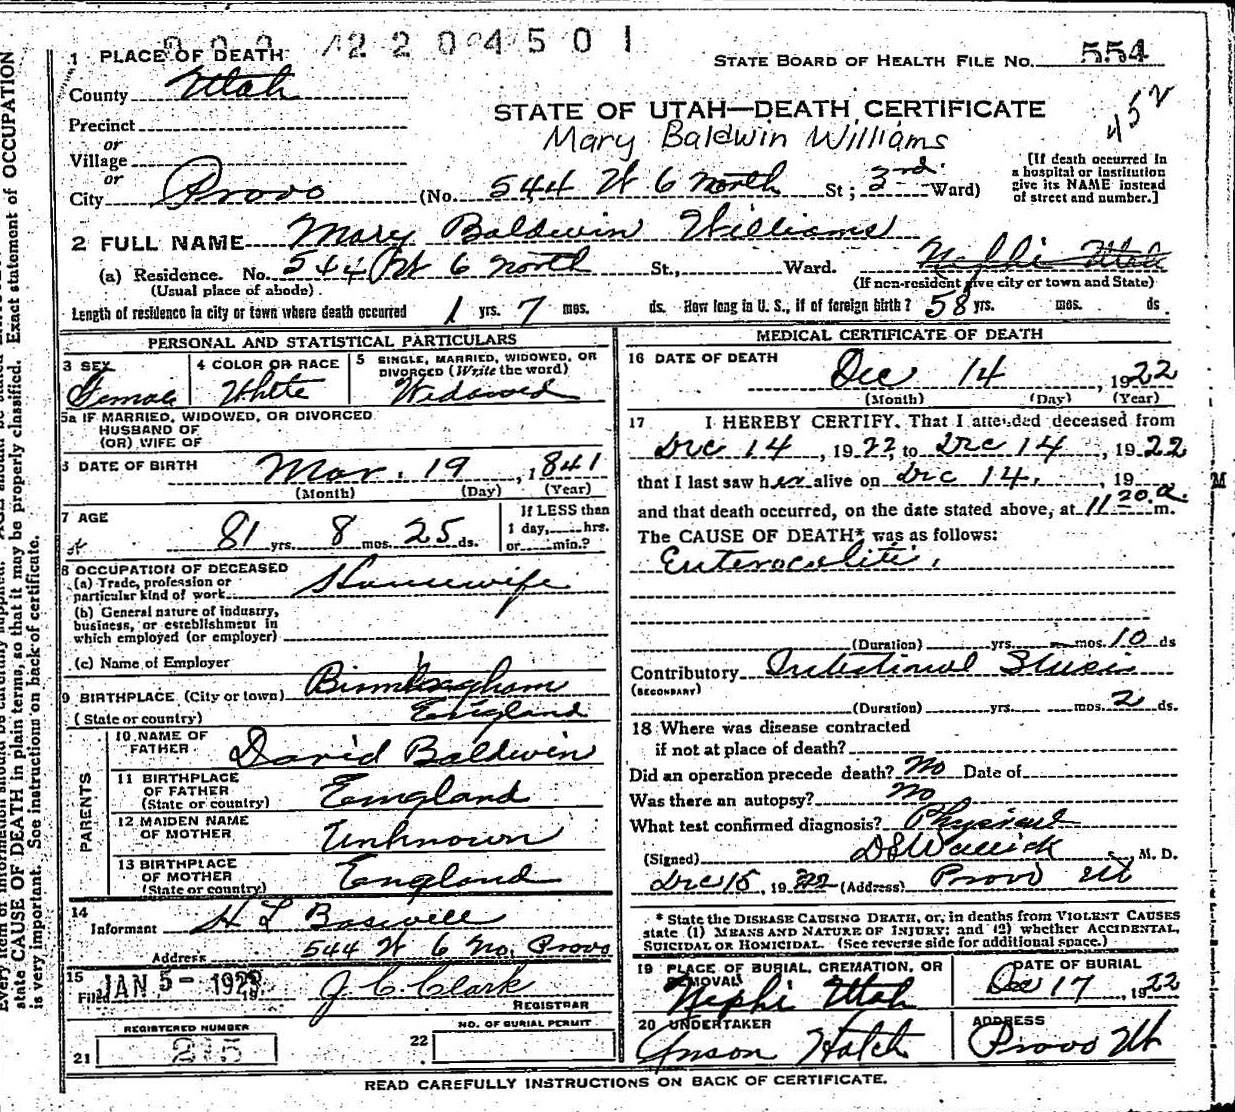 2204501
1 PLACE OF DEATH
STATE BOARD OF HEALTH FILE NO. 554
County Utah
STATE OF UTAH—DEATH CERTIFICATE
452
Precinct
Mary Baldwin Williams
or
Village
or
City Provo (No. 544 W 6 North St; 3rd Ward)
[If death occurred in
a hospital or institution
give its NAME instead
of street and number.]
2 FULL NAME Mary Baldwin Williams
(a) Residence. No. 544 W 6 North St., Ward. Nephi Utah
(Usual place of abode) (If non-resident give city or town and State)
Length of residence in city or town where death occurred 1 yrs. 7 mos. ds. How long in U. S., if of foreign birth? 58 yrs. mos. ds.
PERSONAL AND STATISTICAL PARTICULARS
3 SEX Female
4 COLOR OR RACE White
5 SINGLE, MARRIED, WIDOWED, OR
DIVORCED (Write the word)
Widowed
5a IF MARRIED, WIDOWED, OR DIVORCED
HUSBAND OF
(OR) WIFE OF
6 DATE OF BIRTH Mar. 19, 1841
(Month) (Day) (Year)
7 AGE 81 yrs. 8 mos. 25 ds.
If LESS than
1 day, hrs.
or min.?
8 OCCUPATION OF DECEASED
(a) Trade, profession or
particular kind of work Housewife
(b) General nature of industry,
business, or establishment in
which employed (or employer)
(c) Name of Employer
9 BIRTHPLACE (City or town) Birmingham
(State or country) England
PARENTS
10 NAME OF
FATHER David Baldwin
11 BIRTHPLACE
OF FATHER
(State or country) England
12 MAIDEN NAME
OF MOTHER Unknown
13 BIRTHPLACE
OF MOTHER
(State or country) England
14
Informant H L Boswell
Address 544 W 6 No. Provo
15
Filed JAN 5 - 1923 J. C. Clark
REGISTRAR
REGISTERED NUMBER
21 215
NO. OF BURIAL PERMIT
22
MEDICAL CERTIFICATE OF DEATH
16 DATE OF DEATH
Dec 14, 1922
(Month) (Day) (Year)
17 I HEREBY CERTIFY, That I attended deceased from
Dec 14, 1922, to Dec 14, 1922
that I last saw her alive on Dec 14, 19
and that death occurred, on the date stated above, at 11 20 a. m.
The CAUSE OF DEATH* was as follows:
Enterocolitis
(Duration) yrs. mos. 10 ds
Contributory Intestinal Stasis
(SECONDARY)
(Duration) yrs. mos. 2 ds.
18 Where was disease contracted
if not at place of death?
Did an operation precede death? No Date of
Was there an autopsy? No
What test confirmed diagnosis? Physical
(Signed) , M. D.
Dec 15, 1922 (Address) Provo Ut
* State the DISEASE CAUSING DEATH, or, in deaths from VIOLENT CAUSES
state (1) MEANS AND NATURE OF INJURY; and (2) whether ACCIDENTAL,
SUICIDAL OR HOMICIDAL. (See reverse side for additional space.)
19 PLACE OF BURIAL, CREMATION, OR
REMOVAL
Nephi Utah
DATE OF BURIAL
Dec 17, 1922
20 UNDERTAKER
Anson Hatch
ADDRESS
Provo Ut
READ CAREFULLY INSTRUCTIONS ON BACK OF CERTIFICATE.
state CAUSE OF DEATH in plain terms, so that it may be properly classified. Exact statement of OCCUPATION
is very important. See instructions on back of certificate.